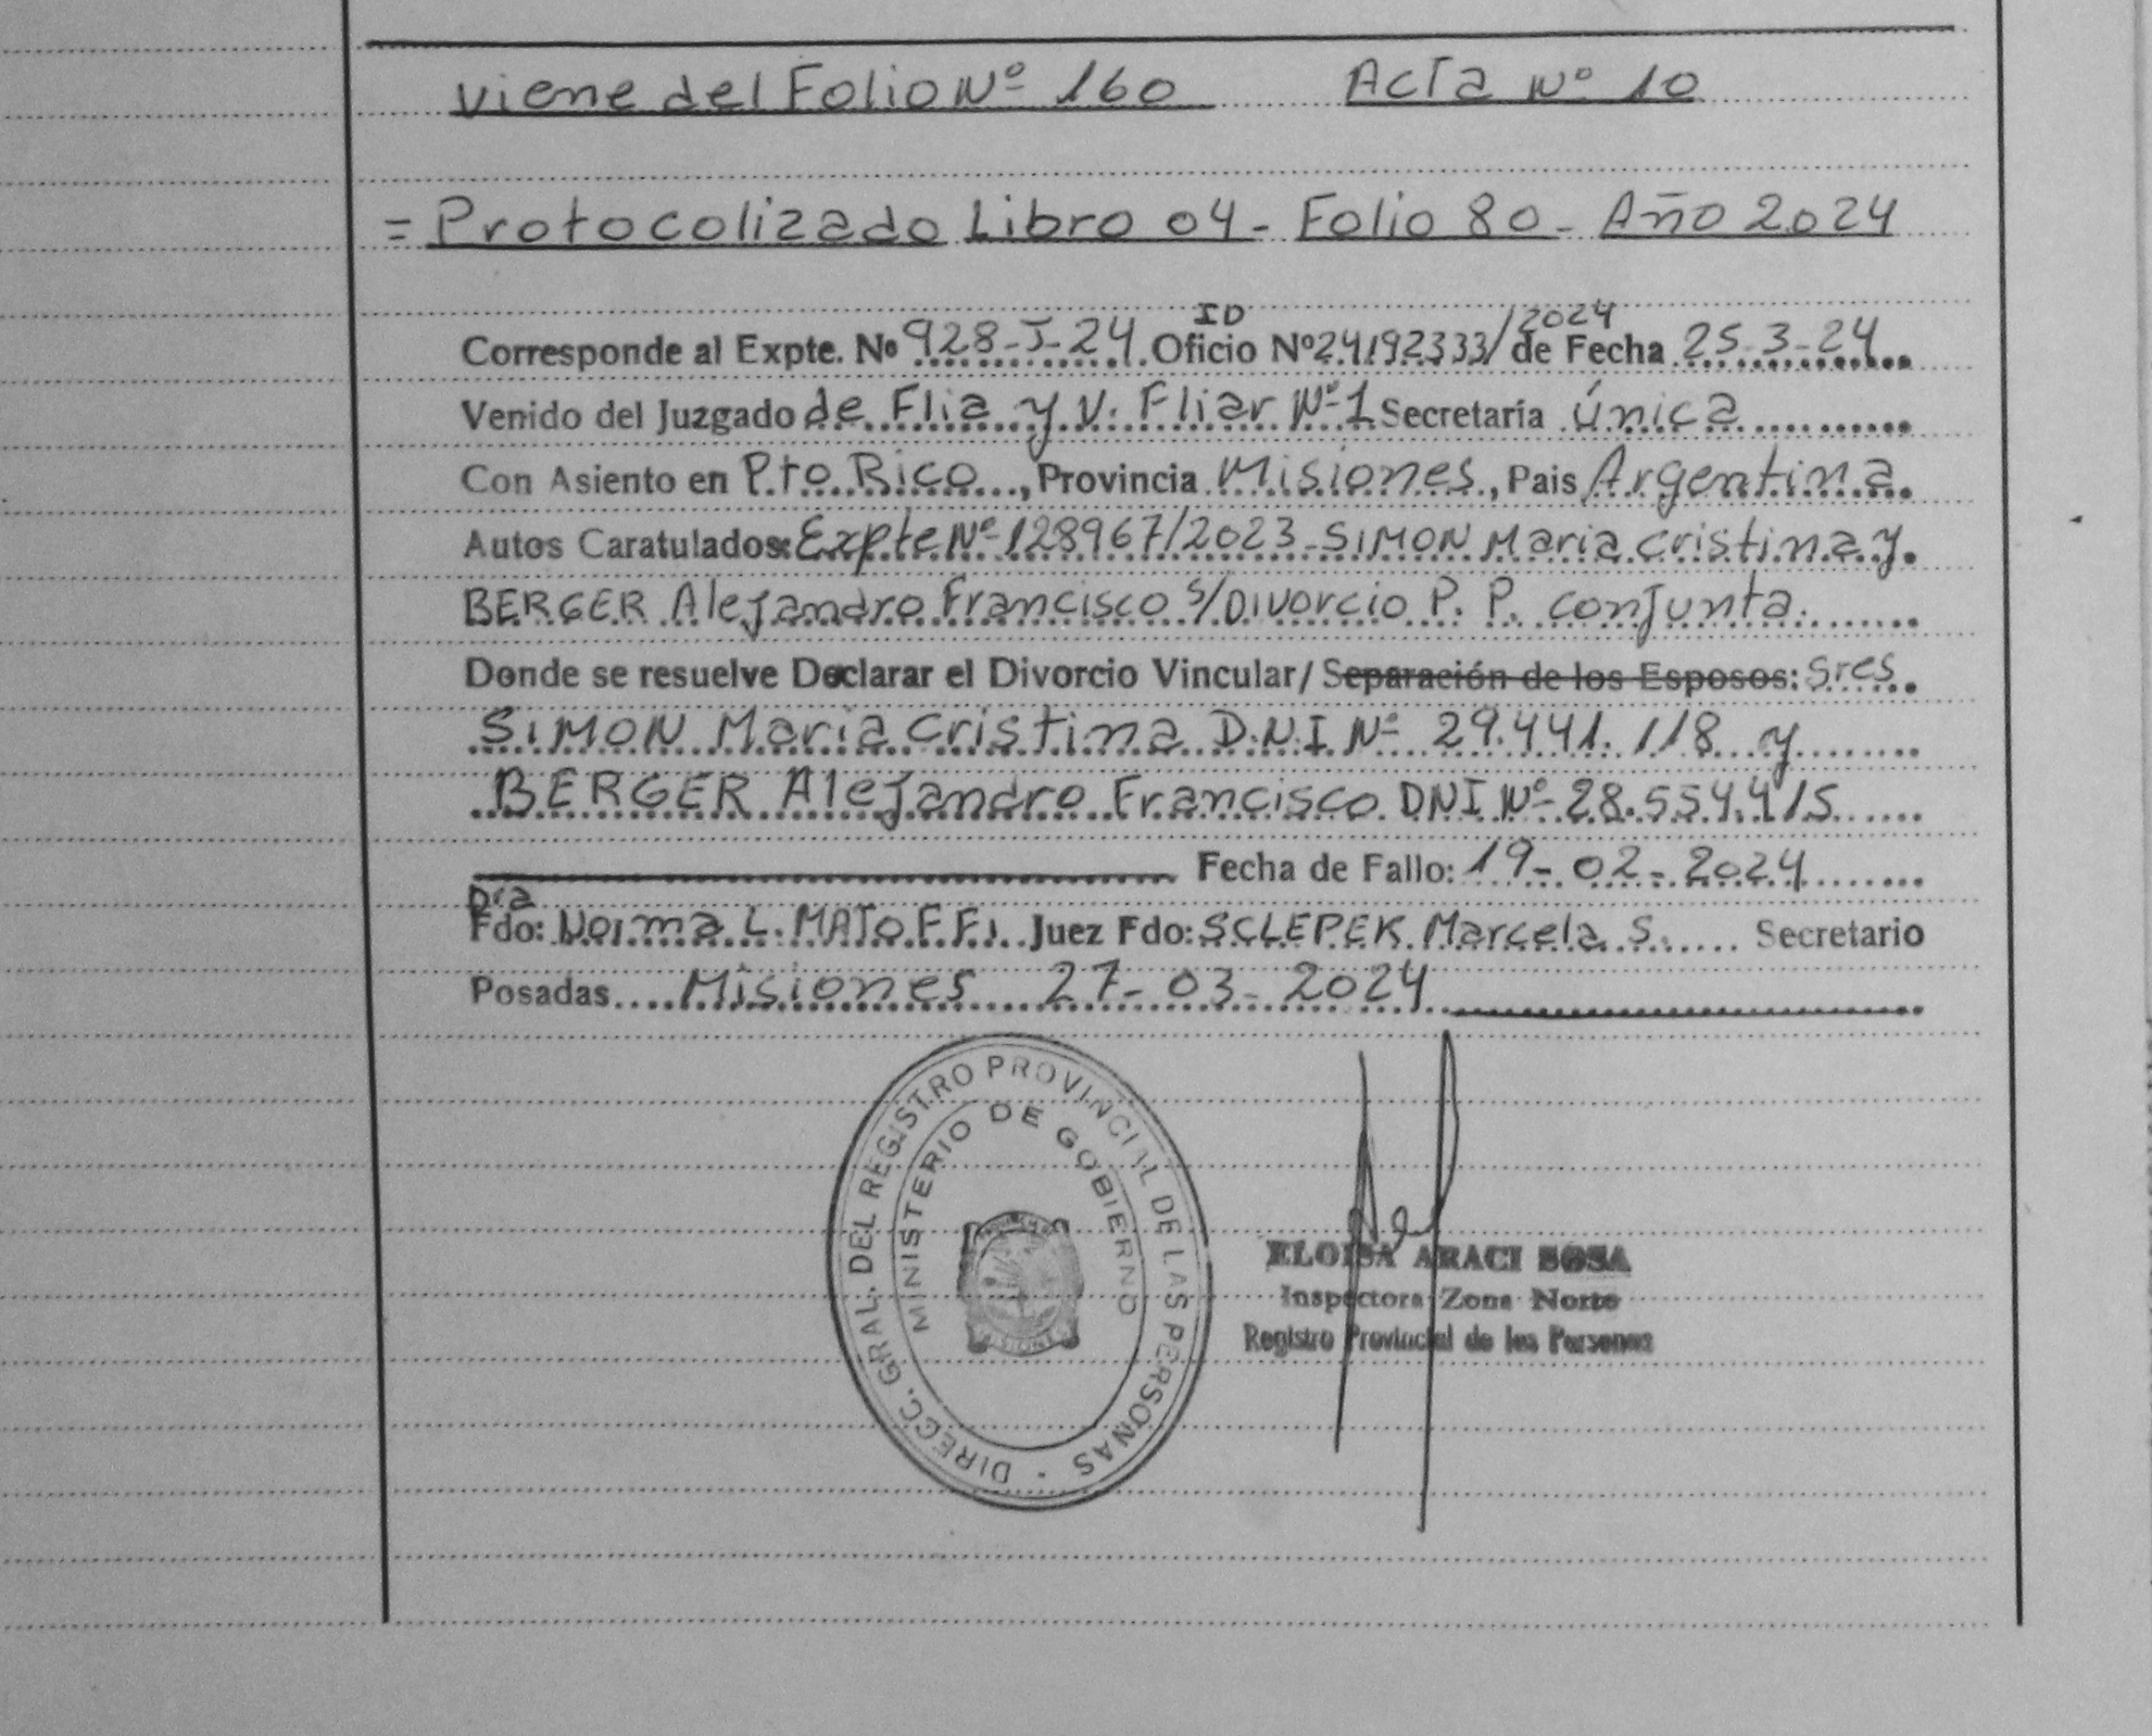 viene del Folio Nº 160 Acta Nº 10
= Protocolizado Libro 04 - Folio 80 - Año 2024
Corresponde al Expte. Nº 928-J-24 Oficio ID Nº 24192333/2024 de Fecha 25-3-24
Venido del Juzgado de Flia y V. Fliar Nº 1 Secretaría única
Con Asiento en Pto Rico, Provincia Misiones, Pais Argentina.
Autos Caratulados: Expte Nº 128967/2023 - SIMON Maria cristina y
BERGER Alejandro Francisco S/ Divorcio P. P. conjunta.
Donde se resuelve Declarar el Divorcio Vincular/ Separación de los Esposos: Sres
SIMON Maria cristina D.N.I Nº 29.441.118 y
BERGER Alejandro Francisco DNI Nº 28.554.415
Fecha de Fallo: 19-02-2024
Dra
Fdo: Norma L. MATO F.F. Juez Fdo: SCLEPEK Marcela S. Secretario
Posadas Misiones 27-03-2024
DIRECC. GRAL. DEL REGISTRO PROVINCIAL DE LAS PERSONAS
MINISTERIO DE GOBIERNO
ELOISA ARACI SOSA
Inspectora Zona Norte
Registro Provincial de las Personas